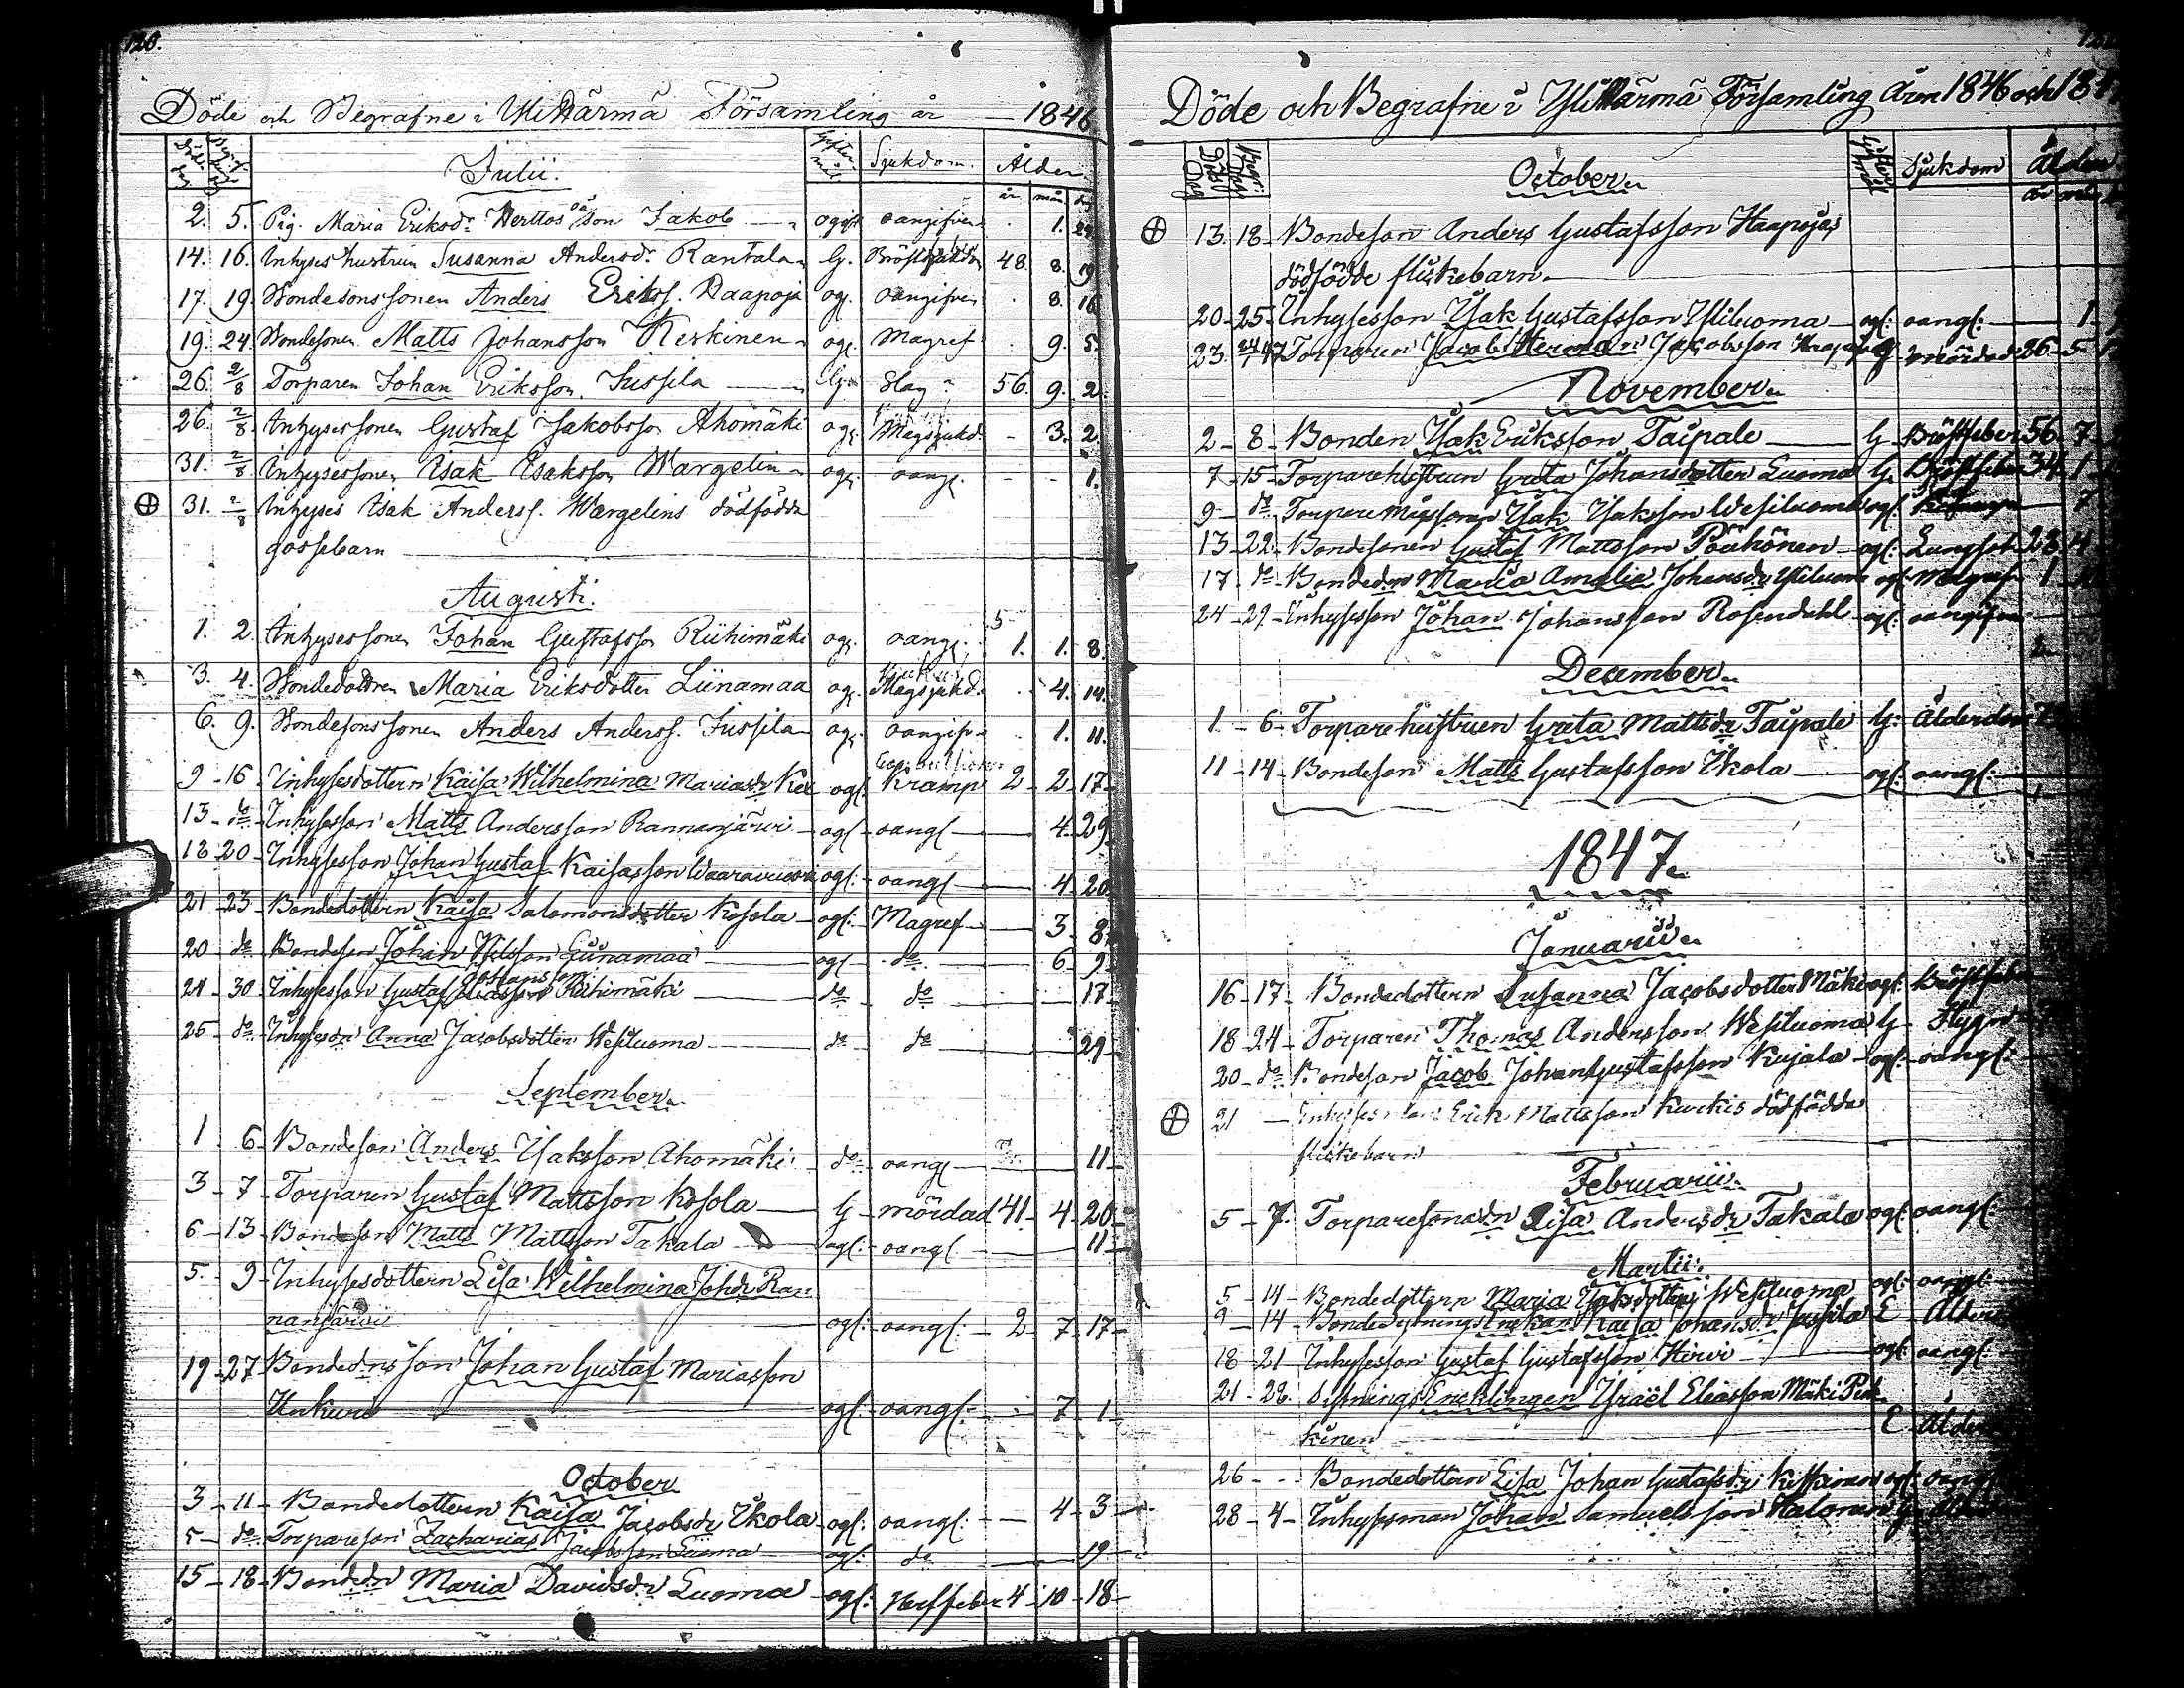 120.
Döde och Begrafne i Ylihärmä Församling år 1846
Döde dag Begraf. dag Julii. Giftermål Sjukdom. Ålder.
år mån dag
2. 5. Pig. Maria Eriksdr Herttos oä son Jakob ogift oangifven 1. 24
14. 16. Inhyses hustrun Susanna Andersdr Rantala G. Bröstsjukdom 48. 8. 19
17. 19 Bondesonssonen Anders Erikss. Haapoja og. oangifven 8. 16
19. 24. Bondesonen Matts Johansson Keskinen og. Magref 9. 5.
26. 2/8 Torparen Johan Eriksson Jussila G. Slag 56. 9. 2.
26. 2/8 Inhysessonen Gustaf Jakobsson Ahomäki og. Magsjukd. 3. 2.
31. 2/8 Inhysessonen Isak Isaksson Wargelin og. oang. 1.
31. 2/8 Inhyses Isak Anderss. Wargelins dödfödda
gossebarn
Augusti.
1. 2. Inhysessonen Johan Gustafsson Riihimäki og. oang. 1. 1. 8.
3. 4. Bondedottren Maria Eriksdotter Liinamaa og. Magsjukd. 4. 14.
6. 9. Bondesonssonen Anders Anderss. Jussila og. oangif. 1. 11.
9 - 16 - Inhysesdottern Kaisa Wilhelmina Mariasdr ogf. Kramp 2 - 2 - 17
13 - do - Inhysesson Matts Andersson Rannanjärwi ogf - oangf 4 - 29
18 20 - Inhysesson Johan Gustaf Kaisasson ogf: - oangf 4 - 20
21 - 23 - Bondedottern Kaisa Salomonsdotter Kosola - ogf: - Magref 3 - 8
20 do Bondeson Johan Nilsson Liinamaa ogf do 6 - 9
24 - 30 - Inhysesson Gustaf Johansson Riihimäki do do 17
25 - do - Inhysesdn Anna Jacobsdotter Wesiluoma do do 29
September
1 6 - Bondeson Anders Isaksson Ahomäki do - oangf 11
3 - 7 - Torparen Gustaf Mattsson Kosola G - mördad 41 - 4 - 20
6 - 13 - Bondeson Matts Mattsson Takala ogf: - oangf 11
5. - 9 - Inhysesdottern Lisa Wilhelmina Johdr Ran
nanjärwi ogf: - oangf: - 2 - 7 - 17
19 - 27 Bondednsson Johan Gustaf Mariasson
Unkuri ogf: - oangf: 7 - 1
October
3 - 11 - Bondedottern Kaisa Jacobsdr Ikola ogf: oangf: 4 - 3
5 - do - Torpareson Zacharias Jacobsson Luoma ogf: do 19
15 - 18 - Bondedn Maria Davidsdr Luoma ogf: 4 - 10 - 18
Döde och Begrafne i Ylihärmä Församling Åren 1846 och
Död Dag Begr: Dag October Giftermål Sjukdom Ålder
år mån
13. 18 - Bondeson Anders Gustafsson Haapojas
dödfödde flickebarn
20 - 25 - Inhysesson Isak Gustafsson Yliluoma ogf: oangf: 1
23. Torparen Jacob Herman Jacobsson G mördad 36 - 5
November
2 - 8 - Bonden Isak Eriksson Taipale G - Bröstfeber 56 - 7
7 - 15 - Torparehustrun Greta Johansdotter Luoma G. Bröstfeber 34 - 1
9 - do - Torparemågssonen Isak Isaksson Wesiluoma ogf: 7
13 - 22 - Bondesonen Gustaf Mattsson Pöuhönen ogf: Lungsot 28 - 4
17 - do - Bondedn Maria Amalia Johansdr Yliluoma ogf Magref 1
24 - 29 - Inhysesson Johan Johansson Rosendahl ogf: oangifven
2
December
1 - 6 - Torparehustruen Greta Mattsdr Taipale G: Ålderdom
11 - 14 - Bondeson Matts Gustafsson Ikola ogf: oangf:
1847
Januarii
16 - 17 - Bondedottern Susanna Jacobsdotter Mäki ogf: Bröstfeber
18 24 - Torparen Thomas Andersson Wesiluoma G - Flygn
20 - do Bondeson Jacob Johan Gustafsson Kujala ogf: - oangf:
21 - Erik Mattsson Kurkis dödfödda
flickebarn
Februarii
5 - 7 - Torparesonadn Lisa Andersdr Takala ogf: oangf:
Martii:
5 - 14 - Bondedottern Maria Isaksdotter Wesiluoma ogf: oangf:
9 - 14 - Bondesytnings Enekan Kaisa Johansdr Jussila E
18 - 21 - Inhysesson Gustaf Gustafsson Hirvi ogf: oangf:
21 - 28. Sytnings Encklingen Israël Eliasson Mäki Pe
kinen E
26 - - - Bondedottern Lisa Johan Gustafsdr Keskinen ogf:
28 - 4 - Inhysesman Johan Samuelsson